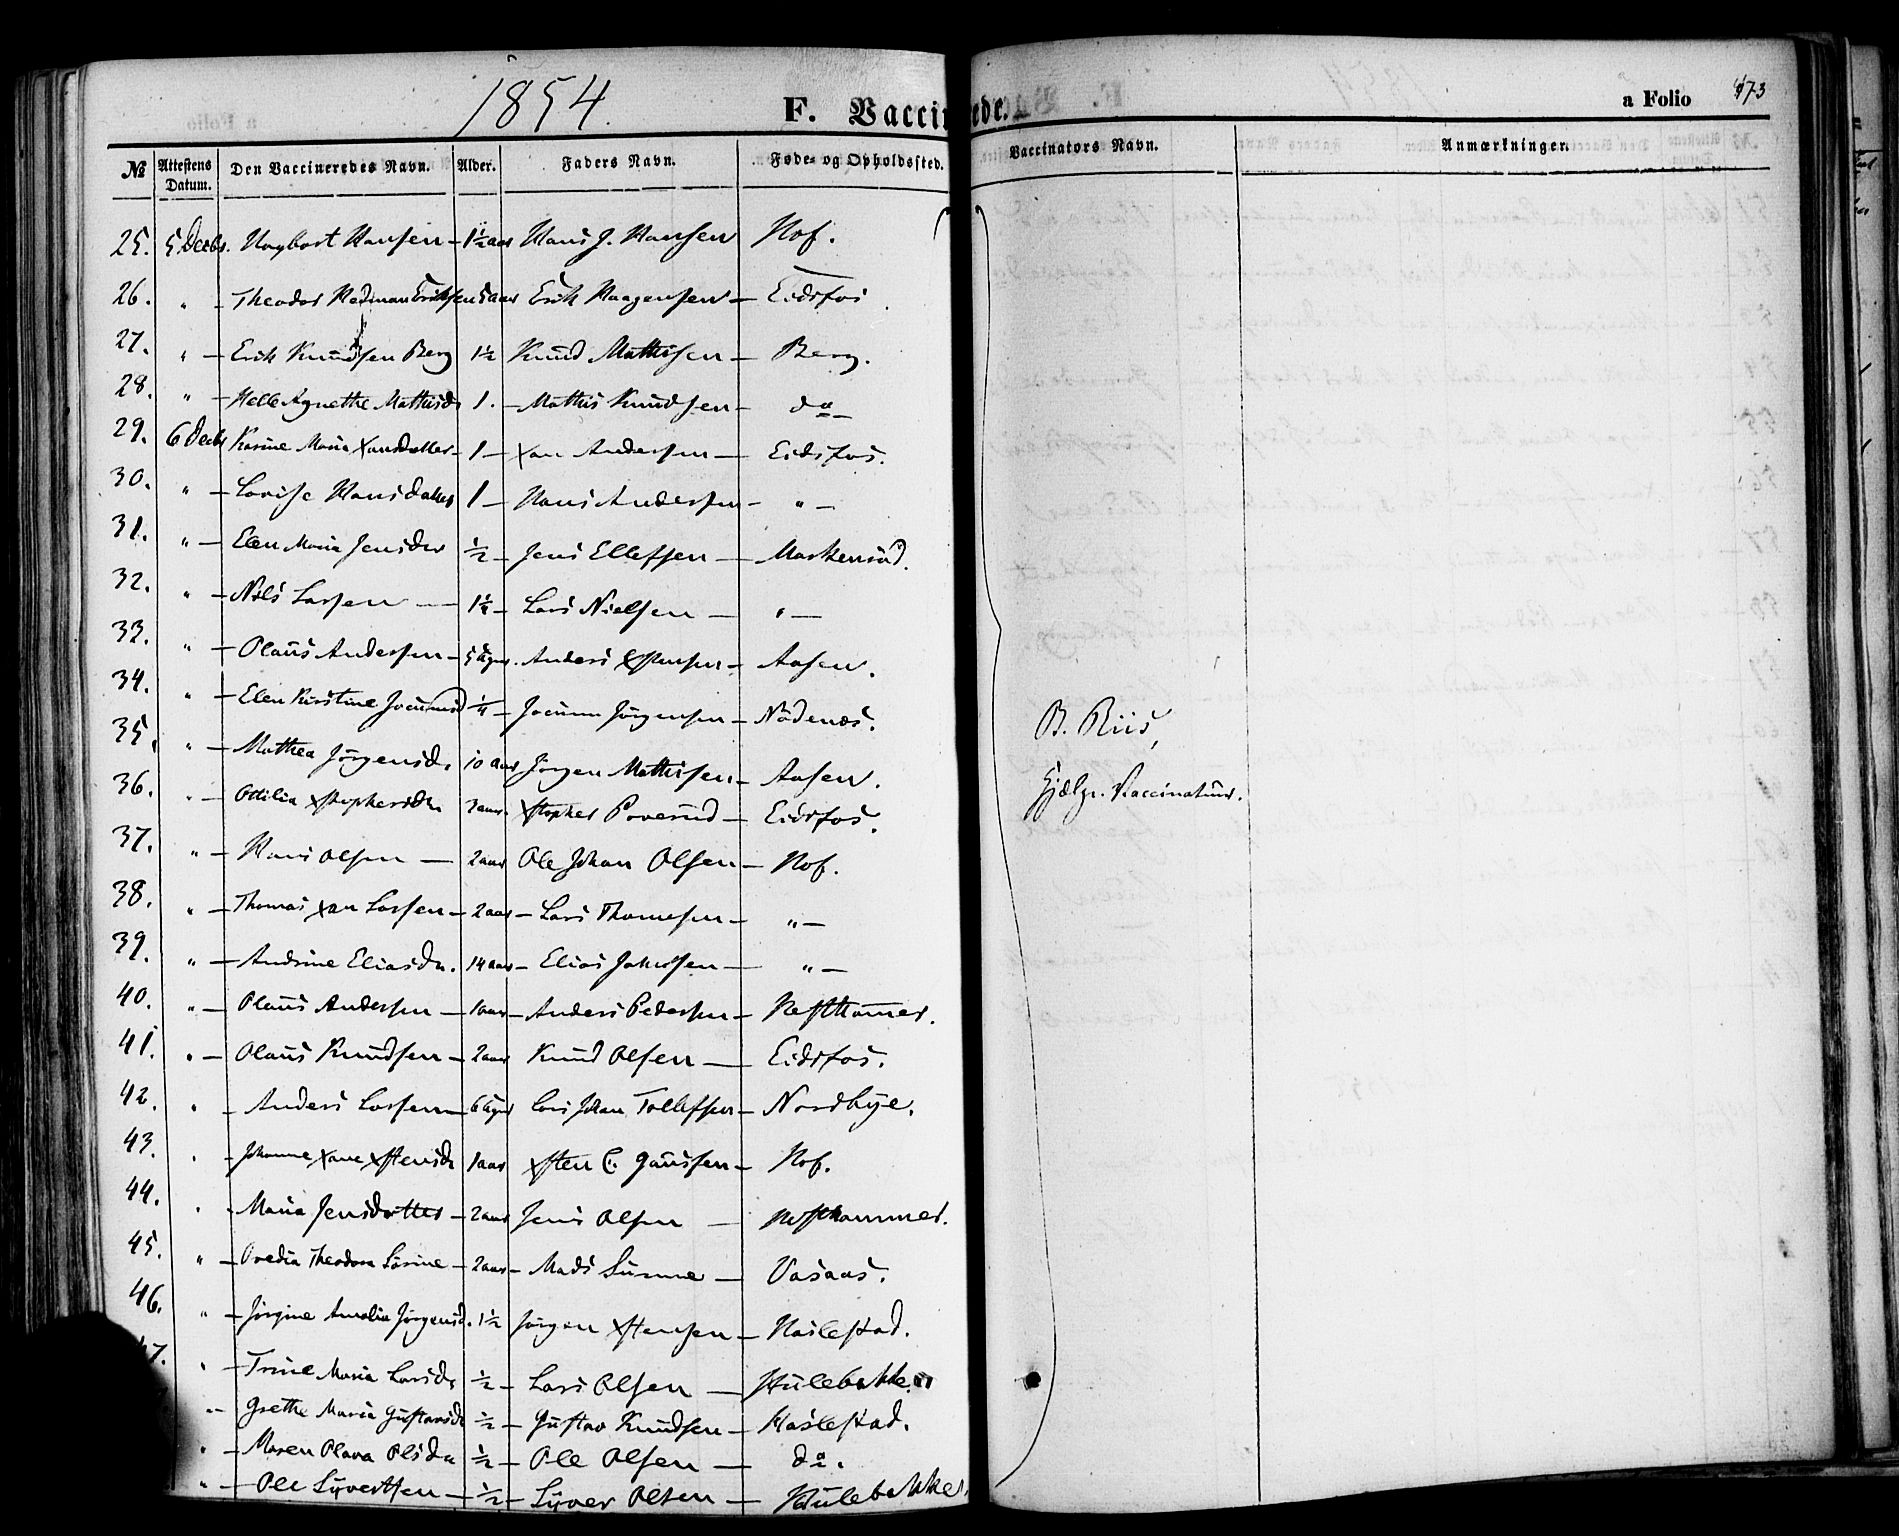 1854.
F. Vaccinerede.
a Folio 473
№ Attestens Datum. Den Vaccineredes Navn. Alder. Faders Navn. Føde- og Opholdssted. Vaccinators Navn. Anmærkninger.
25. 5 Decbr. Hagbart Hansen - 1½ aar Hans J. Hansen Hof.
26. " - Theodor Hedman Eriksen 5 aar Erik Haagensen - Eidsfos
27. " - Erik Knudsen Berg 1½ Knud Mathisen - Berg.
28. " - Helle Agnethe Mathisd. 1. - Mathis Knudsen - do -
29. 6 Decbr Karine Maria Xansdatter - 1 - Xan Andersen - Eidsfos.
30. " - Lovise Hansdatter 1 - Hans Andersen - " -
31. " - Elen Maria Jensdtr ½ - Jens Ellefsen - Markerud.
32. " - Nils Larsen - 1½ - Lars Nielsen - " -
33. " - Olaus Andersen - 5 Uger. Anders Xstensen - Aasen.
34. " - Elen Kirstine Jocumsd ¼ - Jocum Jörgensen - Nödenæs.
35. " - Mathea Jörgensd. 10 aar Jörgen Mathisen - Aasen.
36. " - Ottilia Xstophersdtr 3 aar. Xstopher Poverud - Eidsfos.
37. " - Hans Olsen - 2 aar Ole Johan Olsen - Hof.
38. " - Thomas Xan Larsen - 2 aar - Lars Thomesen - " -
39. " - Andrine Eliasdr. 14 aar - Elias Jakobsen - " -
40. " - Olaus Andersen - 1 aar - Anders Pedersen - Resthammer.
41. " - Olaus Knudsen - 2 aar Knud Olsen - Eidsfos.
42. " - Anders Larsen - 6 Uger Lars Johan Tollefsen - Nordbye.
43. " Johanne Xane Xstensdr 1 aar Xsten C. Gaussen - Hof.
44. " - Maria Jensdatter - 2 aar Jens Olsen - Resthammer.
45. " - Ovedia Theodora Sörine - 2 aar - Mads Sunne - Vasaas.
46. " - Jörgine Amalia Jörgensd. 1½ Jörgen Xstensen - Haslestad.
47. " - Trine Maria Larsdr ½ - Lars Olsen - Hulebakken
" - Grethe Maria Gustavsdr ½ - Gustav Knudsen - Haslestad.
" - Maren Olava Olsdr ½ - Ole Olsen - do.
" - Ole Syvertsen - ½ - Syver Olsen - Hulebakken
B. Riis,
Hjælpe Vaccinateur.